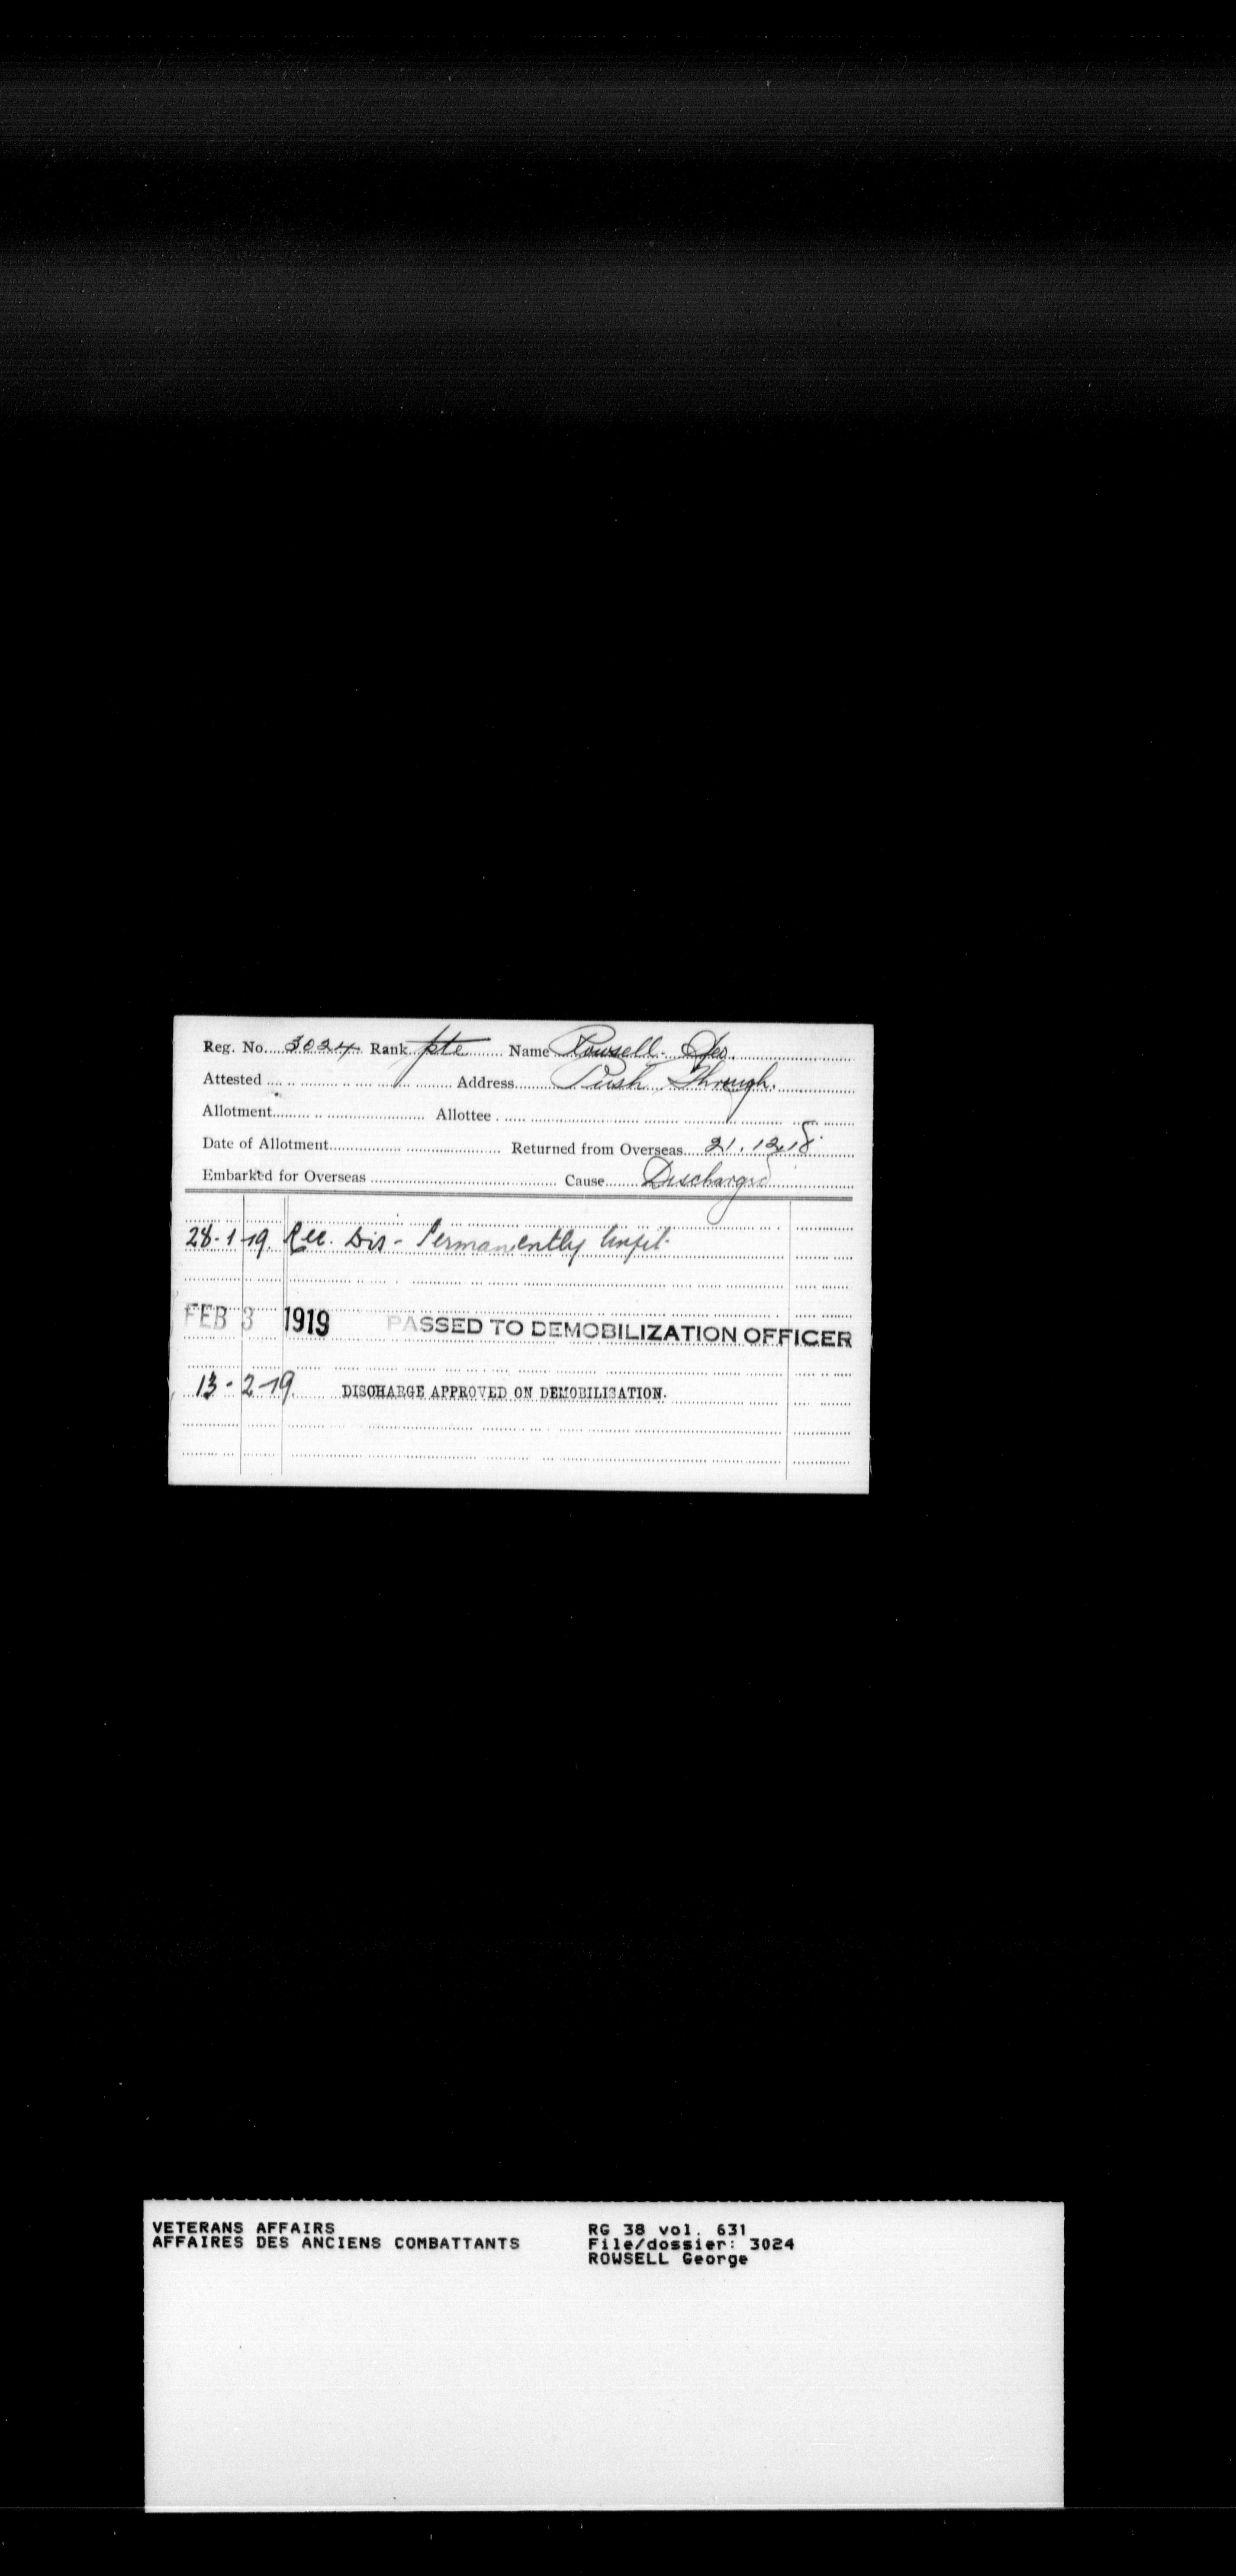 Reg. No. 3024 Rank pte Name Rowsell. Geo.
Attested Address Push Through.
Allotment Allottee
Date of Allotment Returned from Overseas 21.12.18.
Embarked for Overseas Cause Discharged
28-1-19. Rec. Dis - Permanently Unfit.
FEB 3 1919 PASSED TO DEMOBILIZATION OFFICER
13-2-19. DISCHARGE APPROVED ON DEMOBILISATION.
VETERANS AFFAIRS RG 38 vol. 631
AFFAIRES DES ANCIENS COMBATTANTS File/dossier: 3024
ROWSELL George